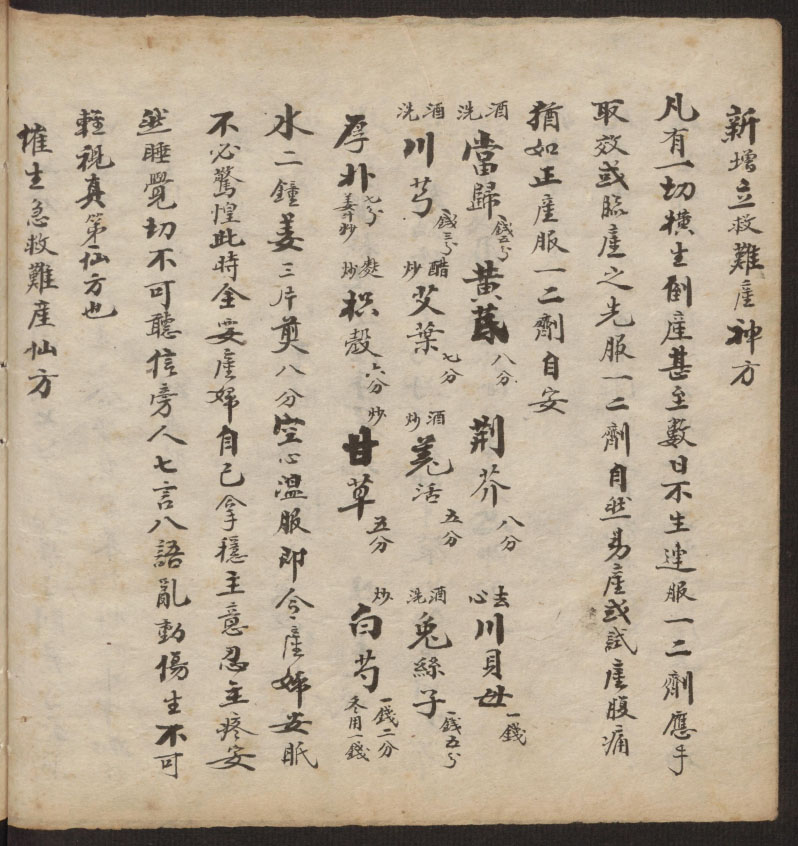 新增立救難產神方
凡有一切橫生倒產甚至數日不生連服一二劑應手
取效或臨產之先服一二劑自然易產或試產腹痛
猶如正產服一二劑自安
酒洗當歸錢五分 黃芪八分 荆芥八分 去心川貝母一錢
酒洗川芎錢三分 醋炒艾葉七分 酒炒羌活五分 酒洗兎絲子一錢五分
厚朴七分姜汁炒 麩炒枳殼六分 炒甘草五分 炒白芍一錢二分冬用一錢
水二鍾姜三片煎八分空心温服即令產婦安眠
不必驚惶此時全要產婦自己拿穩主意忍主疼安
然睡覺切不可聽信旁人七言八語亂動傷生不可
輕視真第一仙方也
催生急救難產仙方